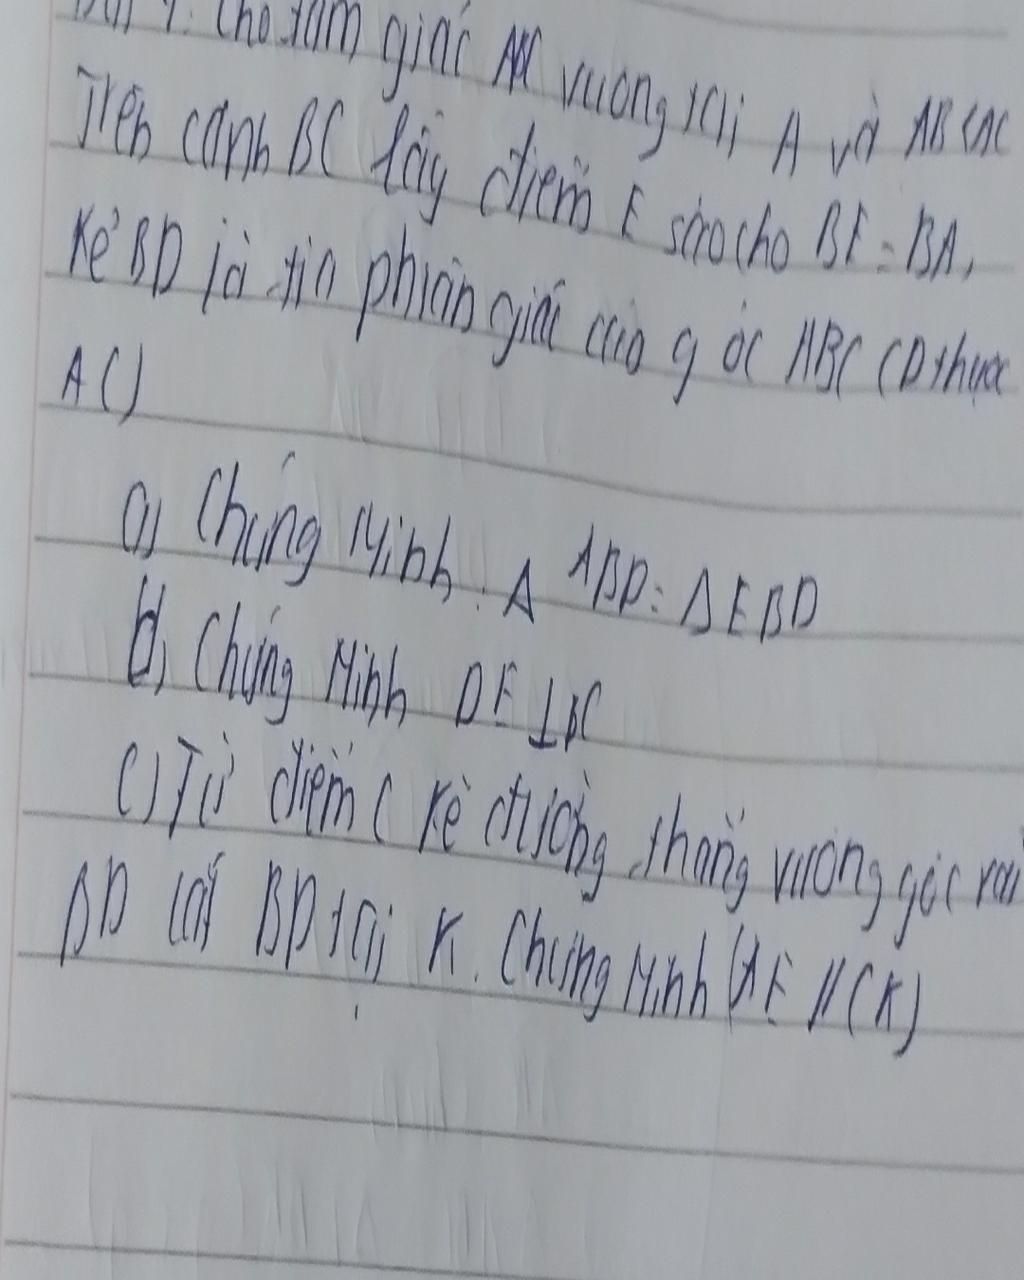 Bài 4: Cho tam giác ABC vuông tại A và AB < AC
Trên cạnh BC lấy điểm E sao cho BE = BA,
Kẻ BD là tia phân giác của góc ABC (D thuộc
AC)
a) Chứng Minh: Δ ABD = ΔEBD
b) Chứng Minh DE ⊥ BC
c) Từ điểm C kẻ đường thẳng vuông góc với
BD cắt BD tại K. Chứng Minh (AE // CK)